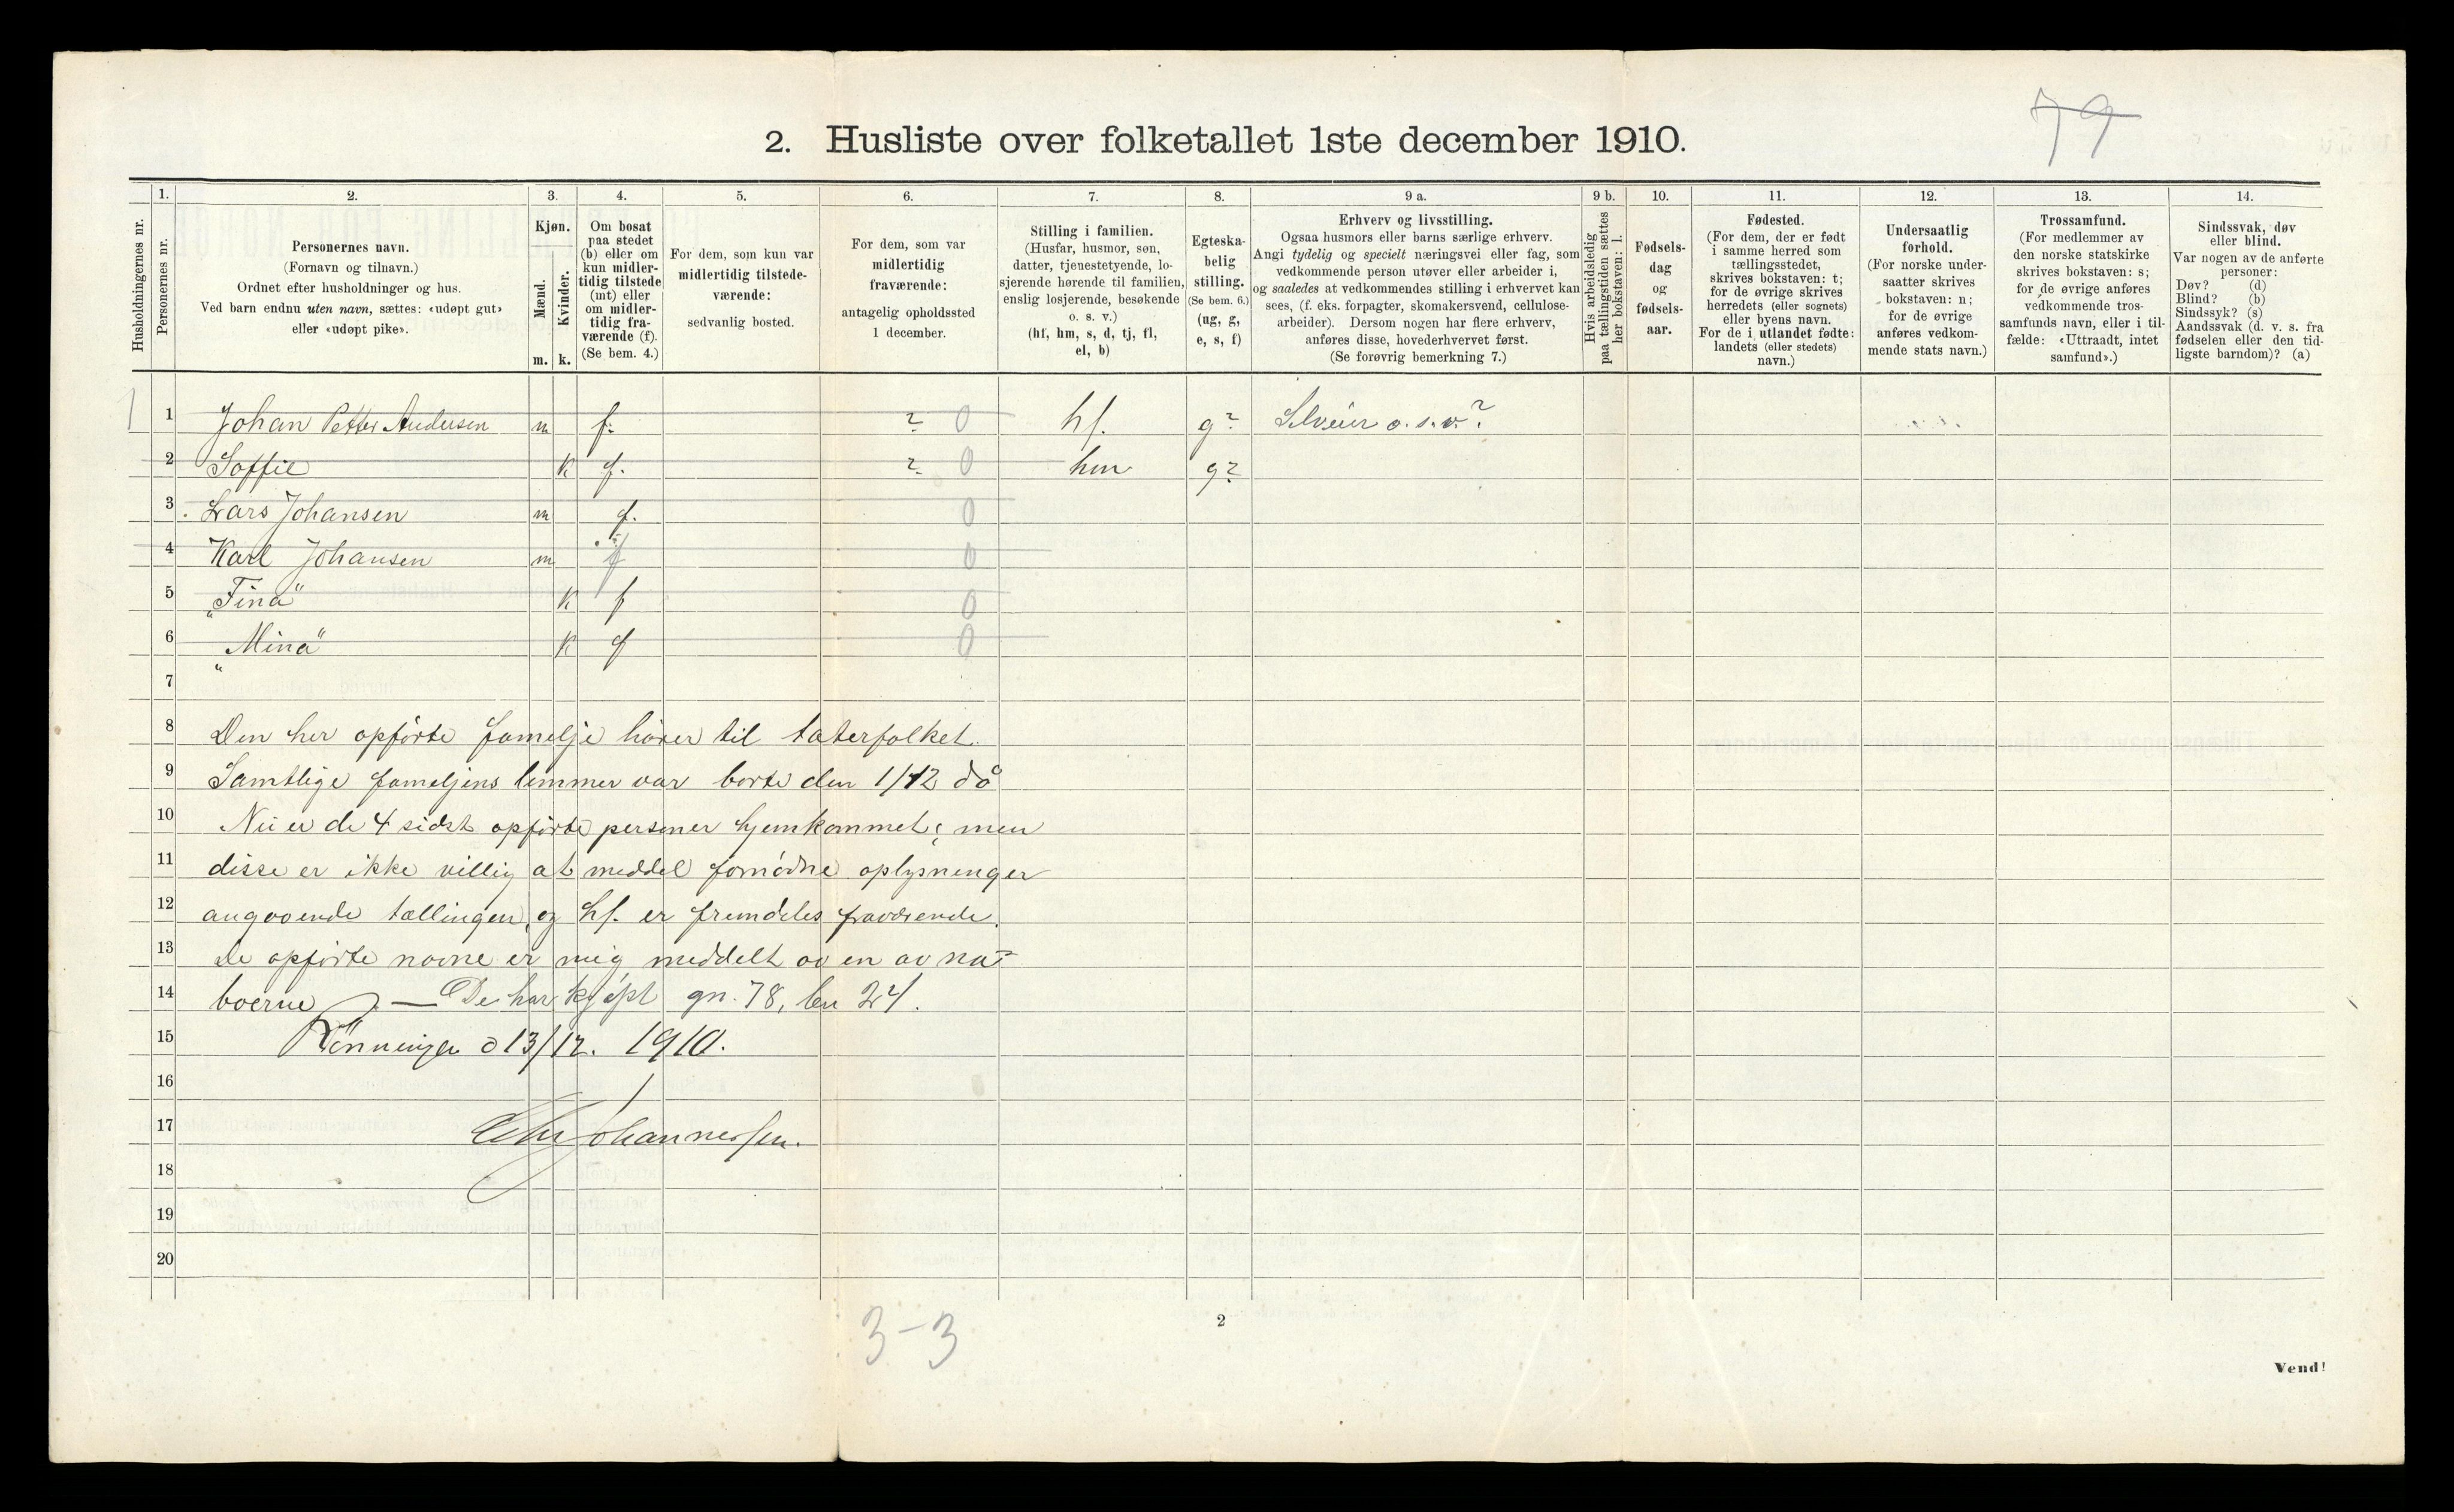 79
2. Husliste over folketallet 1ste december 1910.
Husholdningernes nr.
1.
Personernes nr.
2.
Personernes navn.
(Fornavn og tilnavn.)
Ordnet efter husholdninger og hus.
Ved barn endnu uten navn, sættes: «udøpt gut»
eller «udøpt pike».
3.
Kjøn.
Mænd.
Kvinder.
m. k.
4.
Om bosat
paa stedet
(b) eller om
kun midler-
tidig tilstede
(mt) eller
om midler-
tidig fra-
værende (f).
(Se bem. 4.)
5.
For dem, som kun var
midlertidig tilstede-
værende:
sedvanlig bosted.
6.
For dem, som var
midlertidig
fraværende:
antagelig opholdssted
1 december.
7.
Stilling i familien.
(Husfar, husmor, søn,
datter, tjenestetyende, lo-
sjerende hørende til familien,
enslig losjerende, besøkende
o. s. v.)
(hf, hm, s, d, tj, fl,
el, b)
8.
Egteska-
belig
stilling.
(Se bem. 6.)
(ug, g,
e, s, f)
9 a.
Erhverv og livsstilling.
Ogsaa husmors eller barns særlige erhverv.
Angi tydelig og specielt næringsvei eller fag, som
vedkommende person utøver eller arbeider i,
og saaledes at vedkommendes stilling i erhvervet kan
sees, (f. eks. forpagter, skomakersvend, cellulose-
arbeider). Dersom nogen har flere erhverv,
anføres disse, hovederhvervet først.
(Se forøvrig bemerkning 7.)
9 b.
Hvis arbeidsledig
paa tællingstiden sættes
her bokstaven: l.
10.
Fødsels-
dag
og
fødsels-
aar.
11.
Fødested.
(For dem, der er født
i samme herred som
tællingsstedet,
skrives bokstaven: t;
for de øvrige skrives
herredets (eller sognets)
eller byens navn.
For de i utlandet fødte:
landets (eller stedets)
navn.)
12.
Undersaatlig
forhold.
(For norske under-
saatter skrives
bokstaven: n;
for de øvrige
anføres vedkom-
mende stats navn.)
13.
Trossamfund.
(For medlemmer av
den norske statskirke
skrives bokstaven: s;
for de øvrige anføres
vedkommende tros-
samfunds navn, eller i til-
fælde: «Uttraadt, intet
samfund».)
14.
Sindssvak, døv
eller blind.
Var nogen av de anførte
personer:
Døv? (d)
Blind? (b)
Sindssyk? (s)
Aandssvak (d. v. s. fra
fødselen eller den tid-
ligste barndom)? (a)
1 1 Johan Petter Andersen m f. ? 0 hf. g? o.s.v.?
2 Soffie k f. ? 0 hm g?
3 Lars Johansen m f. 0
4 Karl Johansen m f 0
5 "Fina" k f 0
6 "Mina" k f 0
7
8 Den her opførte familje hører til taterfolket.
9 Samtlige fameljens lemmer var borte den 1/12 då
10 Nu er de 4 sidst opførte personer hjemkommet; men
11 disse er ikke villig at meddel fornødne oplysninger
12 angaaende tællingen, og hf. er fremdeles fraværende.
13 De opførte navne er mig meddelt av en av na-
14 boerne. — De har kjøpt gn. 78, bn 24.
15 Rønningen d 13/12. 1910.
16
17 Chr Johannessen.
18
19
20
3-3
2
Vend!